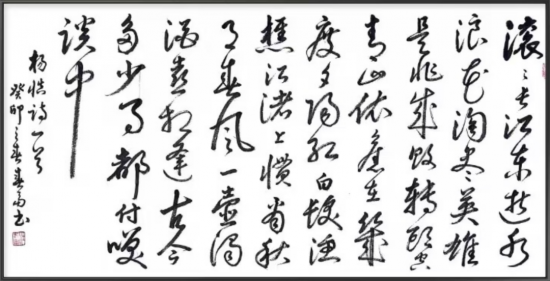 滚滚长江东逝水
浪花淘尽英雄
是非成败轉头空
青山依舊在幾
度夕阳红白發漁
樵江渚上惯看秋
月春风一壶濁
酒喜相逢古今
多少事都付笑
谈中
杨慎诗一首
癸卯之春